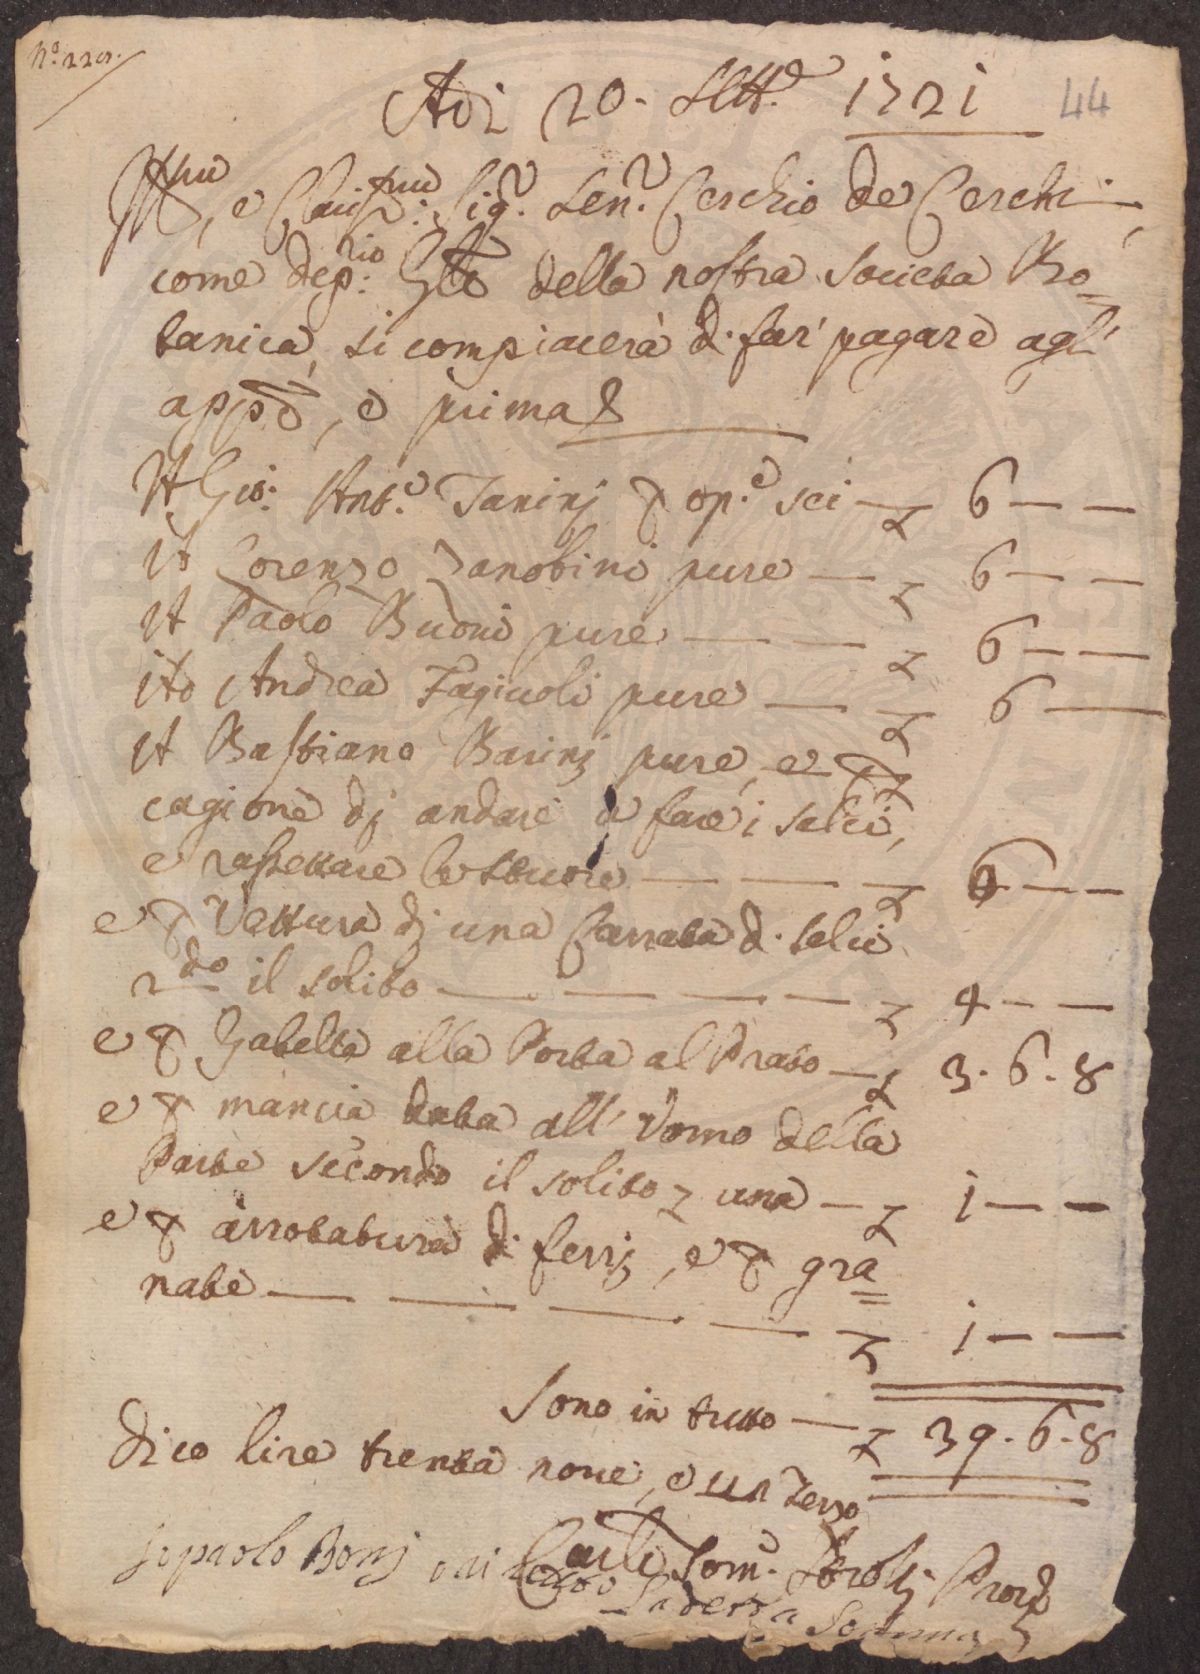 N.º 229.
Adi 20. Sett.e 1721
44
Ill.mo, e Clariss.mo Sig.r Sen.r Cerchio de Cerchi
come dep.rio Gle della nostra Societa Bo=
tanica, si compiacerà d. far' pagare agl'
app.e, e prima
A Gio: Ant.o Janinj p op.e sei — £ 6 — —
A Lorenzo Zanobini pure — £ 6 — —
A Paolo Buoni pure — — £ 6 — —
Ad Andrea Fagiuoli pure — £ 6 —
A Bastiano Barinj pure, e p
cagione dj andare a fare i salci,
e rassettare le stuore — — £ 6 — —
e p Vettura dj una Carrata d. salci
2do il solito — — — — £ 4 — —
e p Gabella alla Porta al Prato — £ 3. 6. 8
e p mancia data all' Vomo della
Parte secondo il solito £ una — £ 1 — —
e p arrotatura di ferrj, e p gra=
nate — — — — £ 1 — —
Sono in tutto — £ 39. 6. 8
Dico lire trenta noue, e un Terzo
Io paolo Bonj